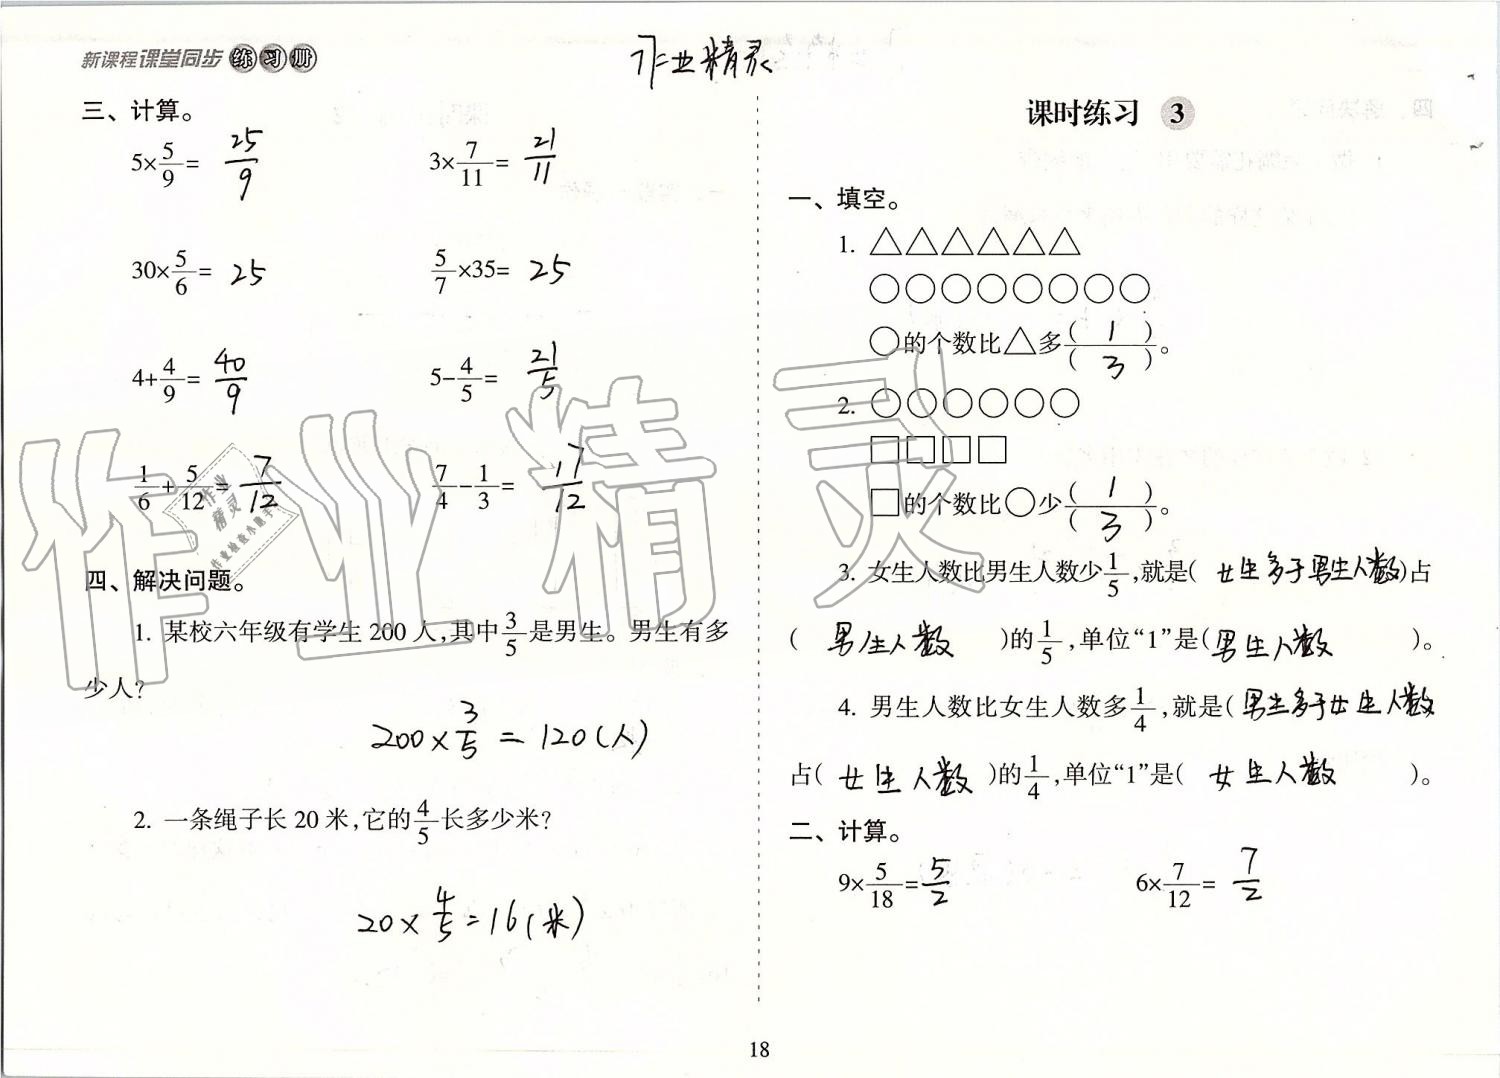 新课程课堂同步练习册
作业精灵
三、计算。
5×5/9= 25/9
3×7/11= 21/11
30×5/6= 25
5/7×35= 25
4+4/9= 40/9
5-4/5= 21/5
1/6+5/12= 7/12
7/4-1/3= 17/12
四、解决问题。
1. 某校六年级有学生200人,其中3/5是男生。男生有多
少人?
200×3/5=120(人)
2. 一条绳子长20米,它的4/5长多少米?
20×4/5=16(米)
18
课时练习 3
一、填空。
1. △△△△△△
○○○○○○○○
○的个数比△多(1)/(3)。
2. ○○○○○○
□□□□
□的个数比○少(1)/(3)。
3. 女生人数比男生人数少1/5,就是(女生多于男生人数)占
(男生人数)的1/5,单位“1”是(男生人数)。
4. 男生人数比女生人数多1/4,就是(男生多于女生人数
占(女生人数)的1/4,单位“1”是(女生人数)。
二、计算。
9×5/18=5/2
6×7/12=7/2
作业精灵
作业
精灵